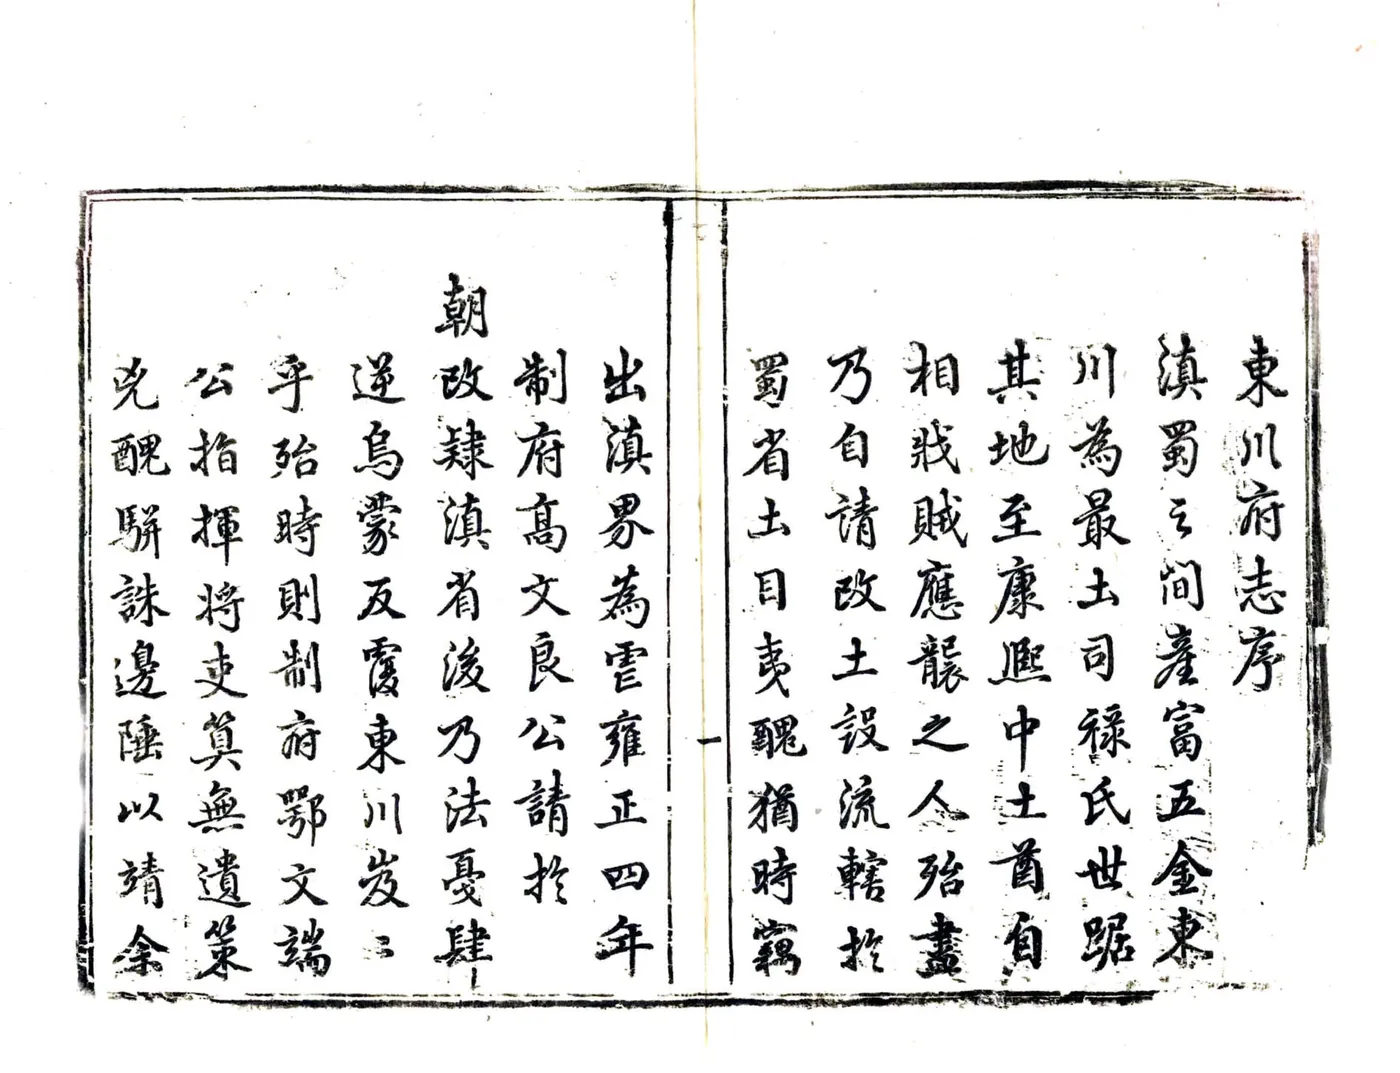 東川府志序
滇蜀之間產富五金東
川為最土司祿氏世踞
其地至康熙中土酋自
相戕賊應襲之人殆盡
乃自請改土設流轄於
蜀省土目夷醜猶時竊
一
出滇界為虐雍正四年
制府高文良公請於
朝改隸滇省後乃法戛肆
逆烏蒙反覆東川岌〻
乎殆時則制府鄂文端
公指揮將吏算無遺策
兇醜駢誅邊陲以靖余